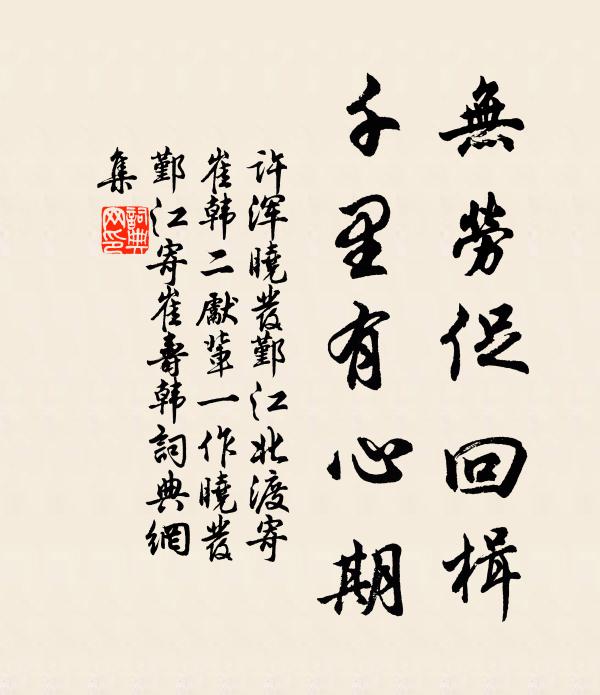 無勞促回楫
千里有心期
許渾曉發鄞江北渡寄
崔韓二獻輩一作曉發
鄞江寄崔壽韓詞典網
集
詞典網印